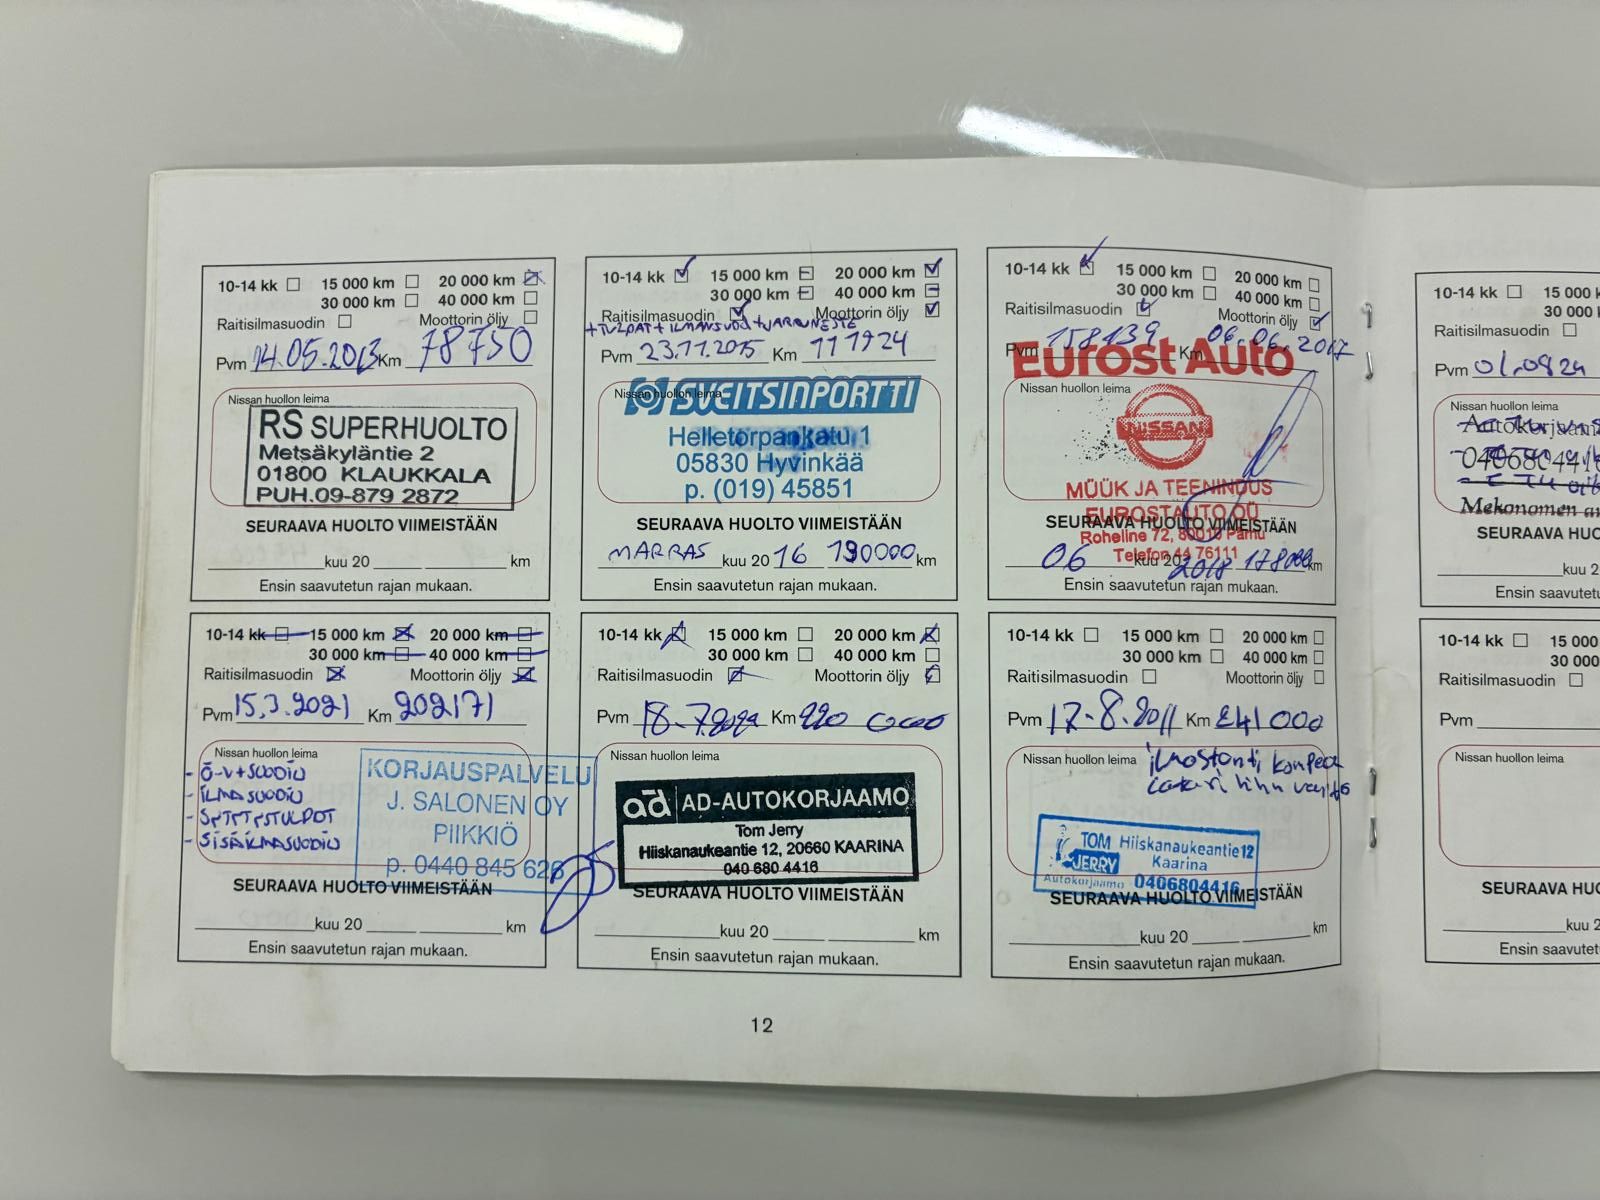 10-14 kk 15 000 km 20 000 km
30 000 km 40 000 km
Raitisilmasuodin Moottorin öljy
Pvm 14.05.2013 Km 78750
Nissan huollon leima
RS SUPERHUOLTO
Metsäkyläntie 2
01800 KLAUKKALA
PUH.09-879 2872
SEURAAVA HUOLTO VIIMEISTÄÄN
kuu 20 km
Ensin saavutetun rajan mukaan.
10-14 kk 15 000 km 20 000 km
30 000 km 40 000 km
Raitisilmasuodin Moottorin öljy
+TULPAT+ILMANSUOD+JARRUNESTE
Pvm 23.11.2015 Km 111924
Nissan huollon leima
SVEITSINPORTTI
Helletorpankatu 1
05830 Hyvinkää
p. (019) 45851
SEURAAVA HUOLTO VIIMEISTÄÄN
MARRAS kuu 20 16 130000 km
Ensin saavutetun rajan mukaan.
10-14 kk 15 000 km 20 000 km
30 000 km 40 000 km
Raitisilmasuodin Moottorin öljy
Pvm 158139 Km 06.06.2017
Eurost Auto
Nissan huollon leima
NISSAN
MÜÜK JA TEENINDUS
EUROSTAUTO OÜ
SEURAAVA HUOLTO VIIMEISTÄÄN
Roheline 72, 80010 Pärnu
Telefon 44 76111
06 kuu 20 2018 178000 km
Ensin saavutetun rajan mukaan.
10-14 kk 15 000 k
30 000
Raitisilmasuodin
Pvm 01.0824
Nissan huollon leima
Autokorjaam
040680441
Mekonomen
SEURAAVA HUO
kuu 2
Ensin saavutetu
10-14 kk 15 000 km 20 000 km
30 000 km 40 000 km
Raitisilmasuodin Moottorin öljy
Pvm 15.3.2021 Km 202171
Nissan huollon leima
- Ö-V+SUODIN
- ILMASUODIN
- SYTYTYSTULPAT
- SISÄILMASUODIN
KORJAUSPALVELU
J. SALONEN OY
PIIKKIÖ
p. 0440 845 626
SEURAAVA HUOLTO VIIMEISTÄÄN
kuu 20 km
Ensin saavutetun rajan mukaan.
10-14 kk 15 000 km 20 000 km
30 000 km 40 000 km
Raitisilmasuodin Moottorin öljy
Pvm 18.7.2022 Km 220 000
Nissan huollon leima
ad AD-AUTOKORJAAMO
Tom Jerry
Hiiskanaukeantie 12, 20660 KAARINA
040 680 4416
SEURAAVA HUOLTO VIIMEISTÄÄN
kuu 20 km
Ensin saavutetun rajan mukaan.
10-14 kk 15 000 km 20 000 km
30 000 km 40 000 km
Raitisilmasuodin Moottorin öljy
Pvm 17.8.2011 Km 241 000
Nissan huollon leima ilmastonti
TOM Hiiskanaukeantie 12
JERRY Kaarina
Autokorjaamo 0406804416
SEURAAVA HUOLTO VIIMEISTÄÄN
kuu 20 km
Ensin saavutetun rajan mukaan.
10-14 kk 15 000
30 000
Raitisilmasuodin
Pvm
Nissan huollon leima
SEURAAVA HU
kuu 2
Ensin saavutet
12